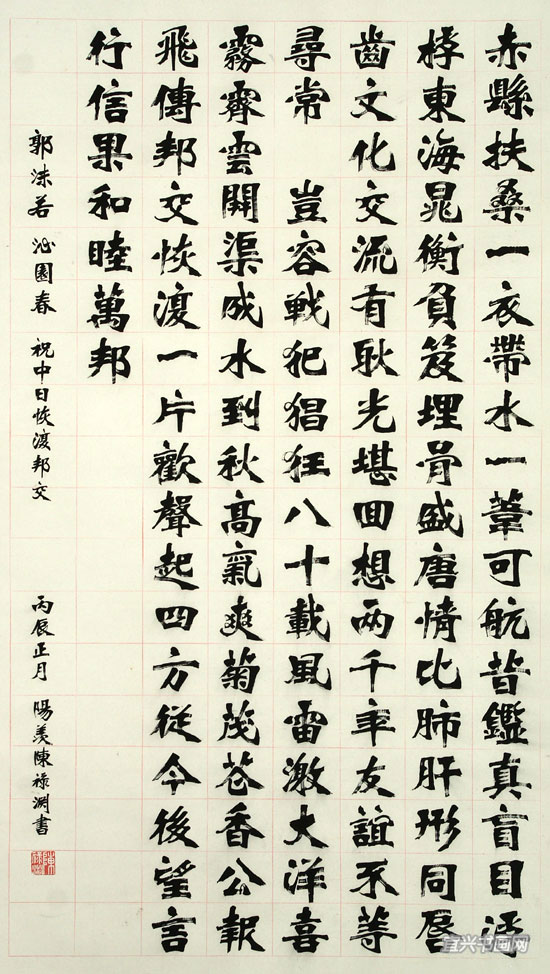 赤縣扶桑一衣帶水一葦可航昔鑑真盲目浮
桴東海晁衡負笈埋骨盛唐情比肺肝形同唇
齒文化交流有耿光堪回想兩千年友誼不等
尋常 豈容戰犯猖狂八十載風雷激大洋喜
霧霽雲開渠成水到秋高氣爽菊茂花香公報
飛傳邦交恢復一片歡聲起四方從今後望言
行信果和睦萬邦
郭沫若 沁園春 祝中日恢復邦交 丙辰正月 陽羨陳祿淵書
宜兴书画网